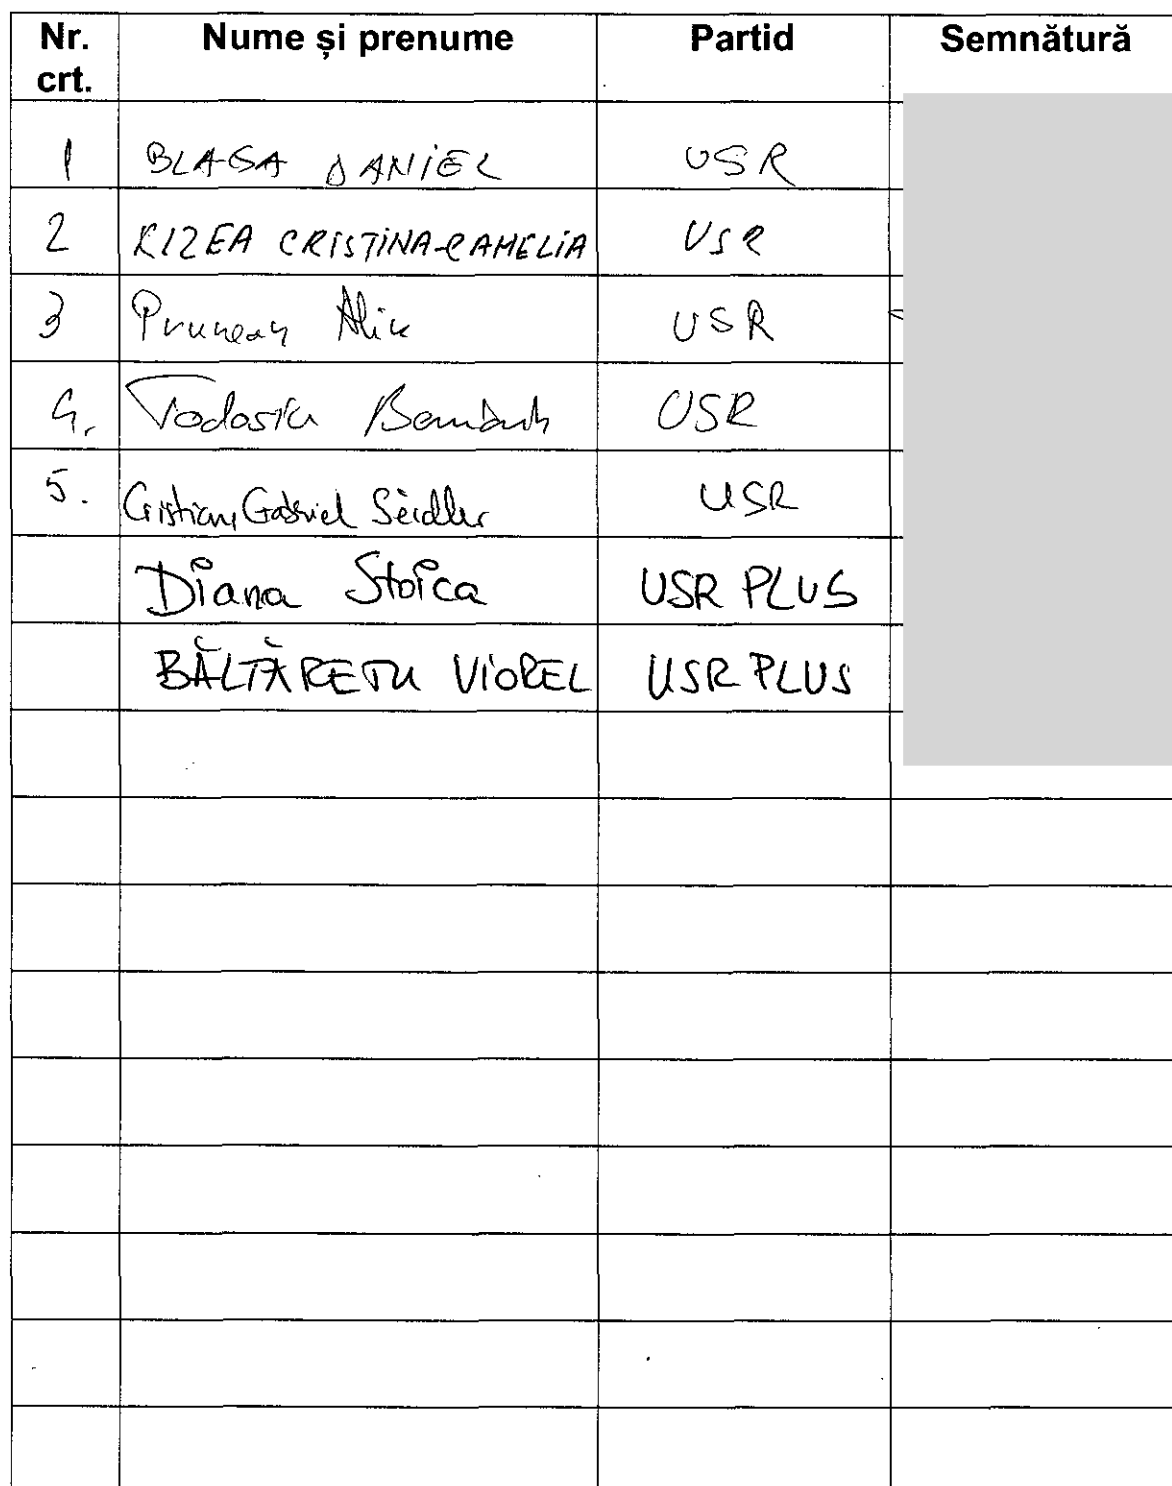 Nr. crt. Nume și prenume Partid Semnătură
1 BLAGA DANIEL USR
2 RIZEA CRISTINA-CAMELIA USR
3 Prunean Alin USR
4. Todosiu USR
5. Cristian, Gabriel Seidler USR
Diana Stoica USR PLUS
BĂLTĂREȚU VIOREL USR PLUS